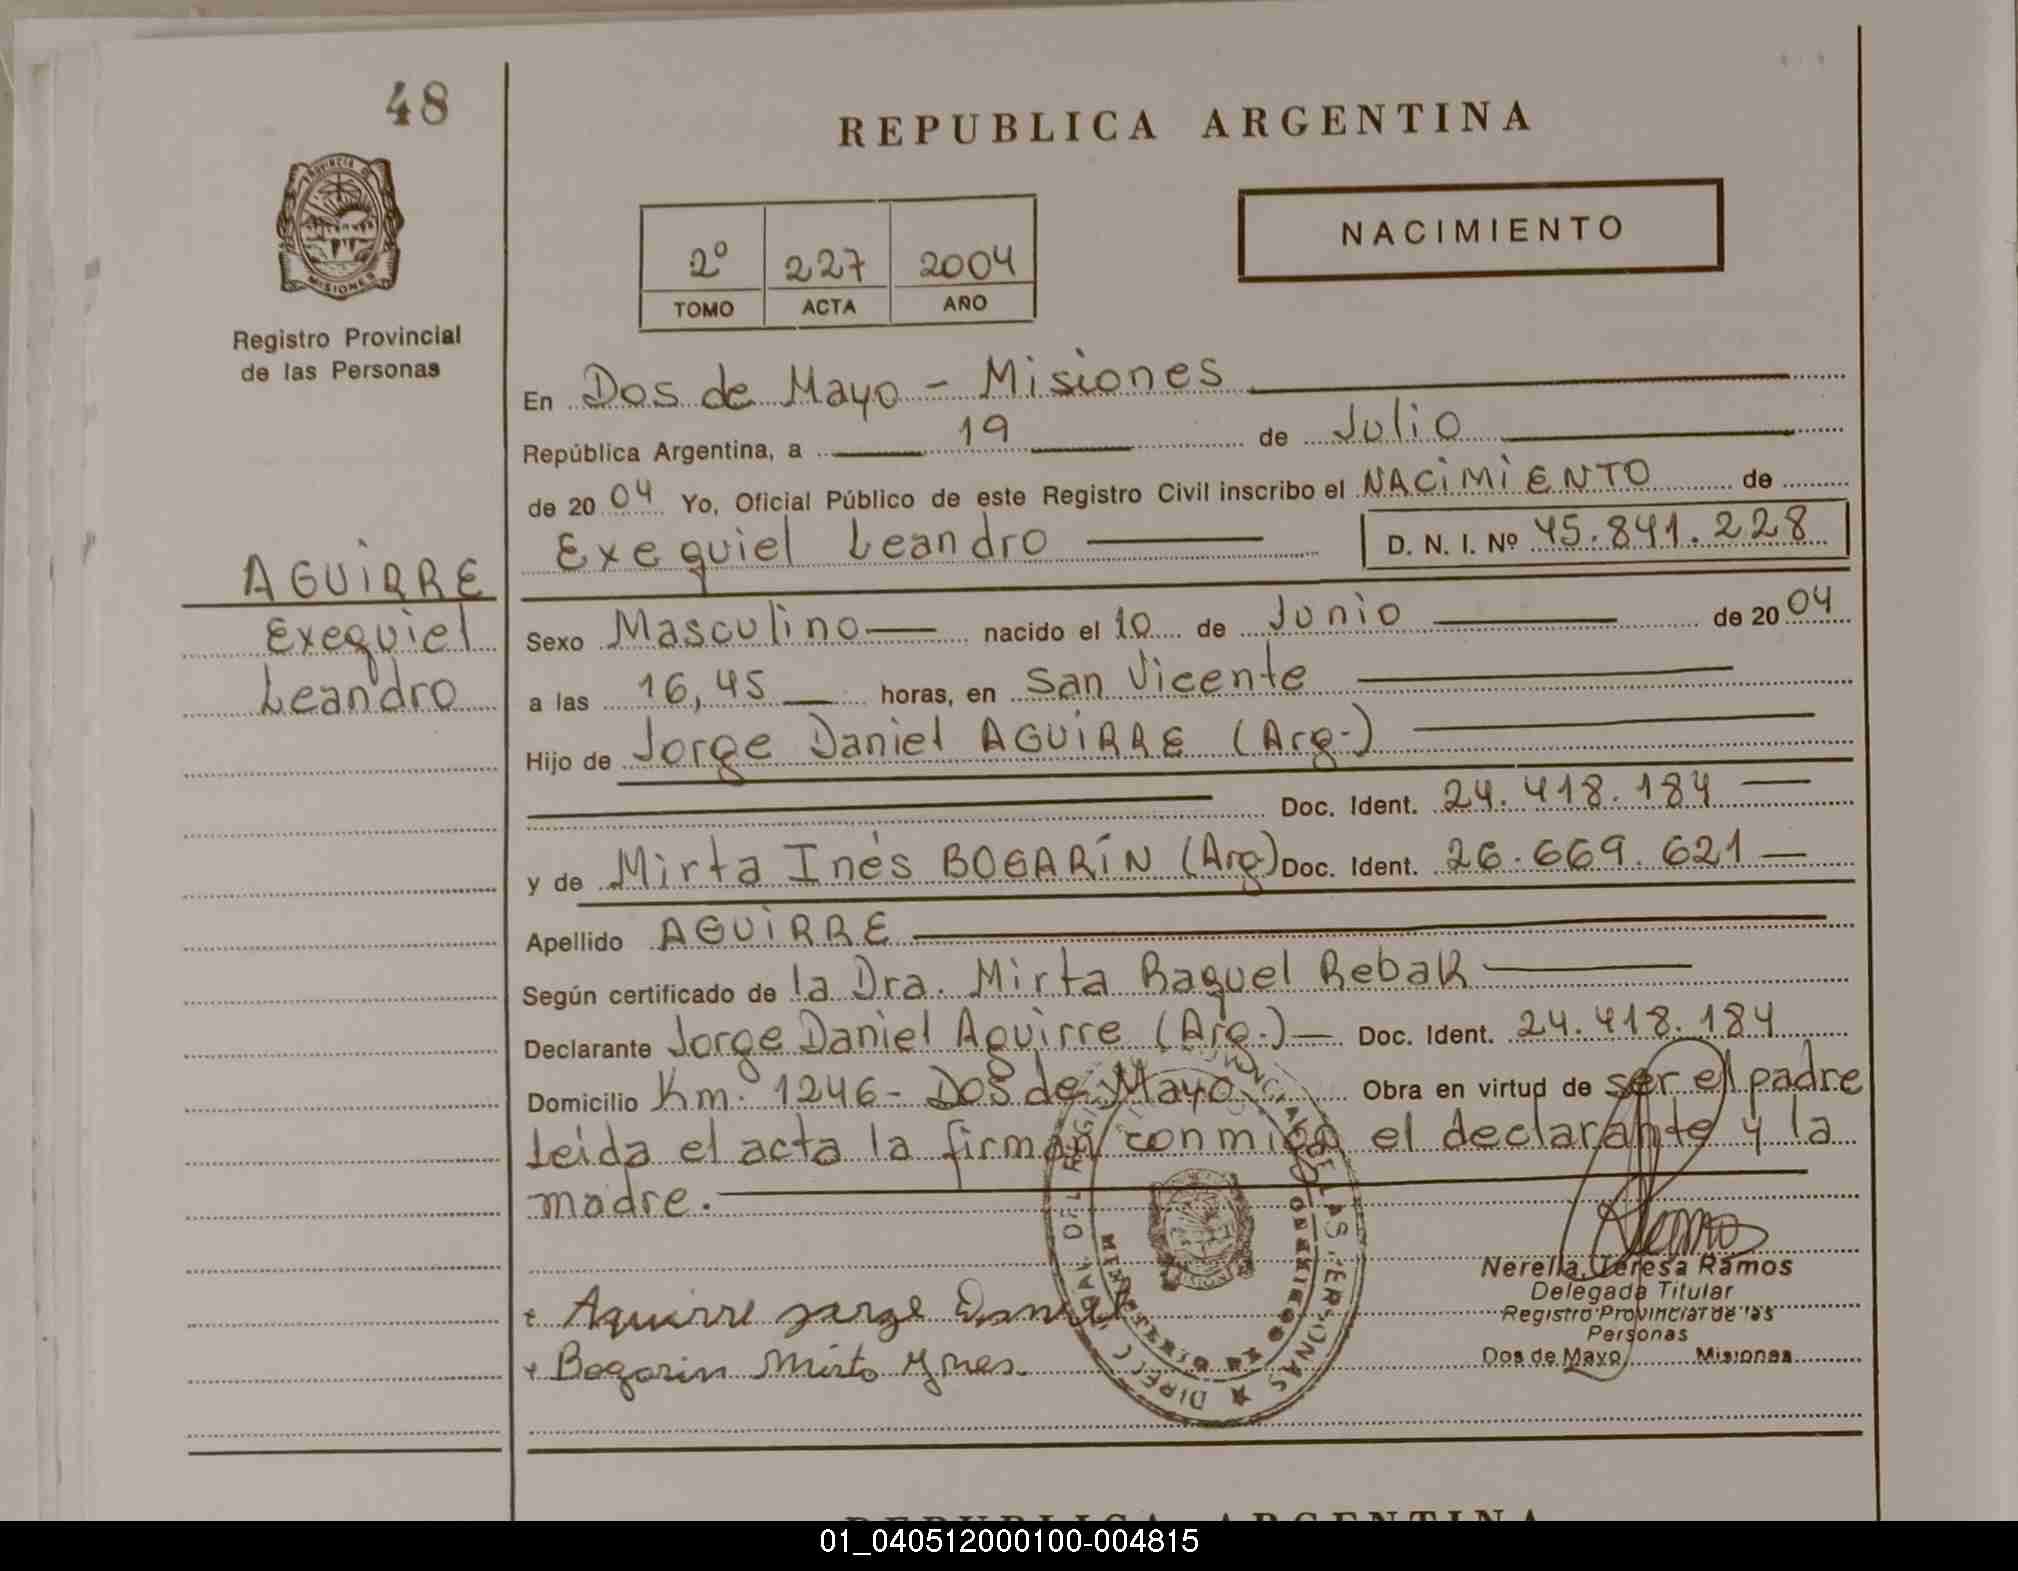 48
REPUBLICA ARGENTINA
PROVINCIA D
MISIONES
Registro Provincial
de las Personas
2º 227 2004
TOMO ACTA AÑO
NACIMIENTO
En Dos de Mayo - Misiones
República Argentina, a 19 de Julio
de 2004 Yo, Oficial Público de este Registro Civil inscribo el NACIMIENTO de
Exequiel Leandro D. N. I. Nº 45.841.228
AGUIRRE
Exequiel
Leandro
Sexo Masculino nacido el 10 de Junio de 2004
a las 16,45 horas, en San Vicente
Hijo de Jorge Daniel AGUIRRE (Arg.)
Doc. Ident. 24.418.184
y de Mirta Inés BOGARÍN (Arg) Doc. Ident. 26.669.621
Apellido AGUIRRE
Según certificado de la Dra. Mirta Raquel Rebak
Declarante Jorge Daniel Aguirre (Arg.) Doc. Ident. 24.418.184
Domicilio Km. 1246 - Dos de Mayo Obra en virtud de ser el padre
Leida el acta la firman conmigo el declarante y la
madre.
+ Aguirre Jorge Daniel
+ Bogarin Mirta Ynes.
Nerella Teresa Ramos
Delegada Titular
Registro Provincial de las
Personas
Dos de Mayo Misiones
REPUBLICA ARGENTINA
01_040512000100-004815